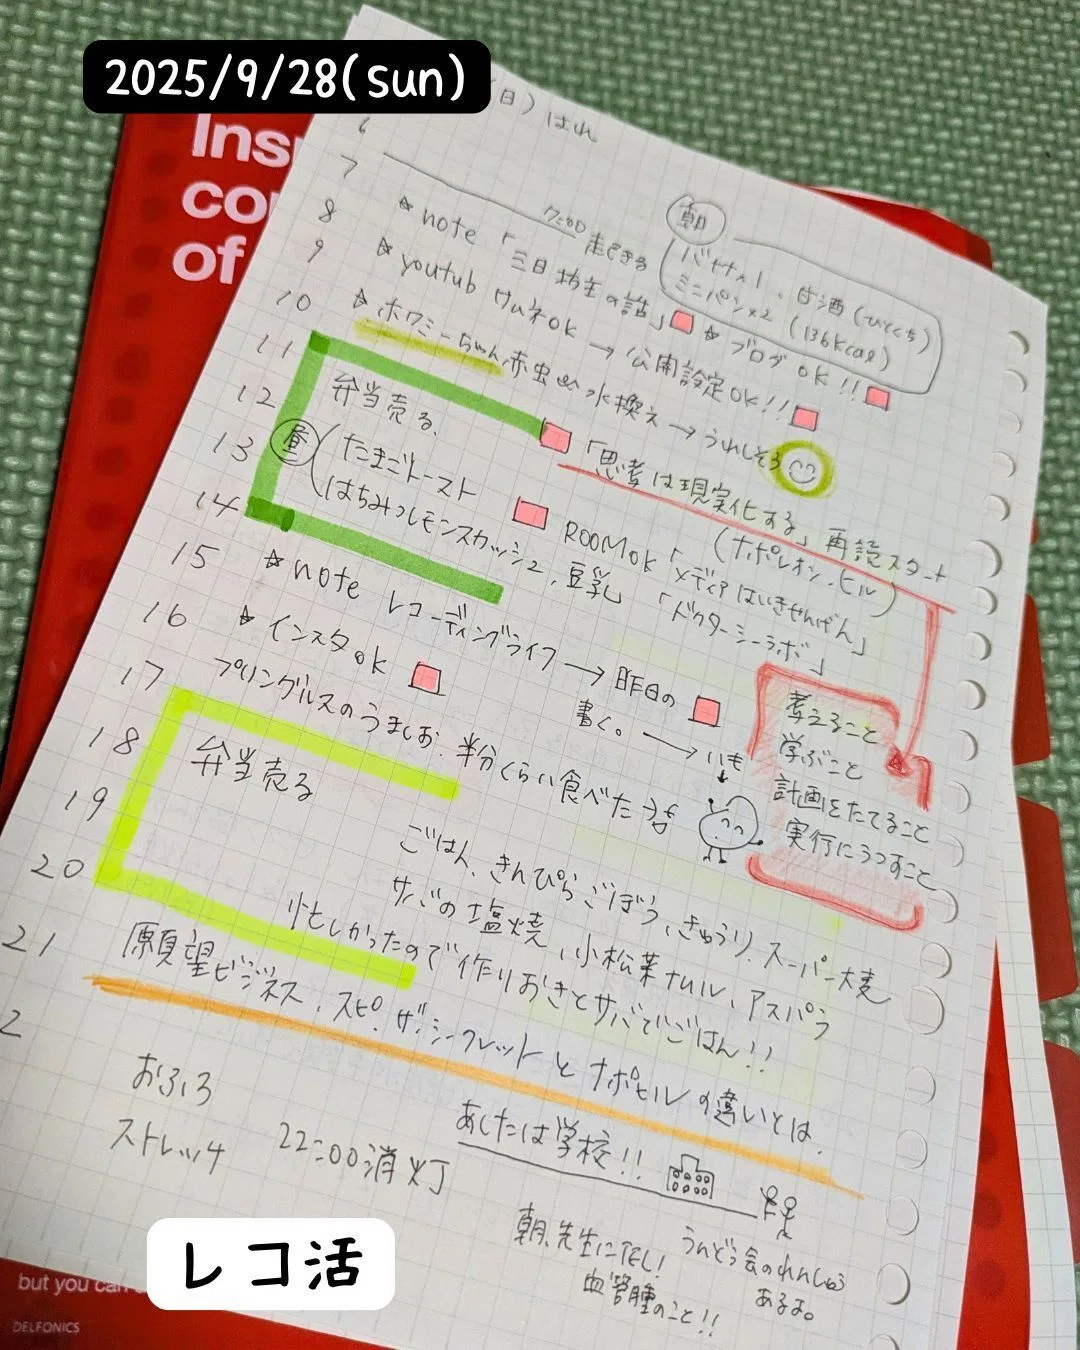 2025/9/28(sun)
Ins
co
of
(日) はれ
6
7
8
9
10
11
12
13
14
15
16
17
18
19
20
21
2
7:00 起きる
朝
バナナ×1、甘酒(ひとくち)
ミニパン×2 (136kcal)
☆note「三日坊主の話」 ☆ブログ OK!!
☆youtub サムネOK → 公開設定OK!!
☆ホワミーちゃん 赤虫 水換え → うれしそう
弁当売る、
「思考は現実化する」再読スタート
(ナポレオン・ヒル)
昼
たまごトースト
はちみつレモンスカッシュ、豆乳
ROOMok「メディアはいきせんげん」
「ドクターシーラボ」
☆note レコーディングライフ → 昨日の
書く。 → いも
☆インスタok
プリングルスのうましお、半分くらい食べた
考えること
学ぶこと
計画をたてること
実行にうつすこと
弁当売る
ごはん、きんぴらごぼう、きゅうり、スーパー大麦
サバの塩焼、小松菜ナムル、アスパラ
忙しかったので作りおきとサバでごはん!!
願望ビジネス、スピ、ザ・シークレットとナポヒルの違いとは、
おふろ
ストレッチ
22:00消灯
あしたは学校!!
朝、先生にTEL!
血管腫のこと!!
うんどう会のれんしゅう
あるよ。
レコ活
but you can
DELFONICS